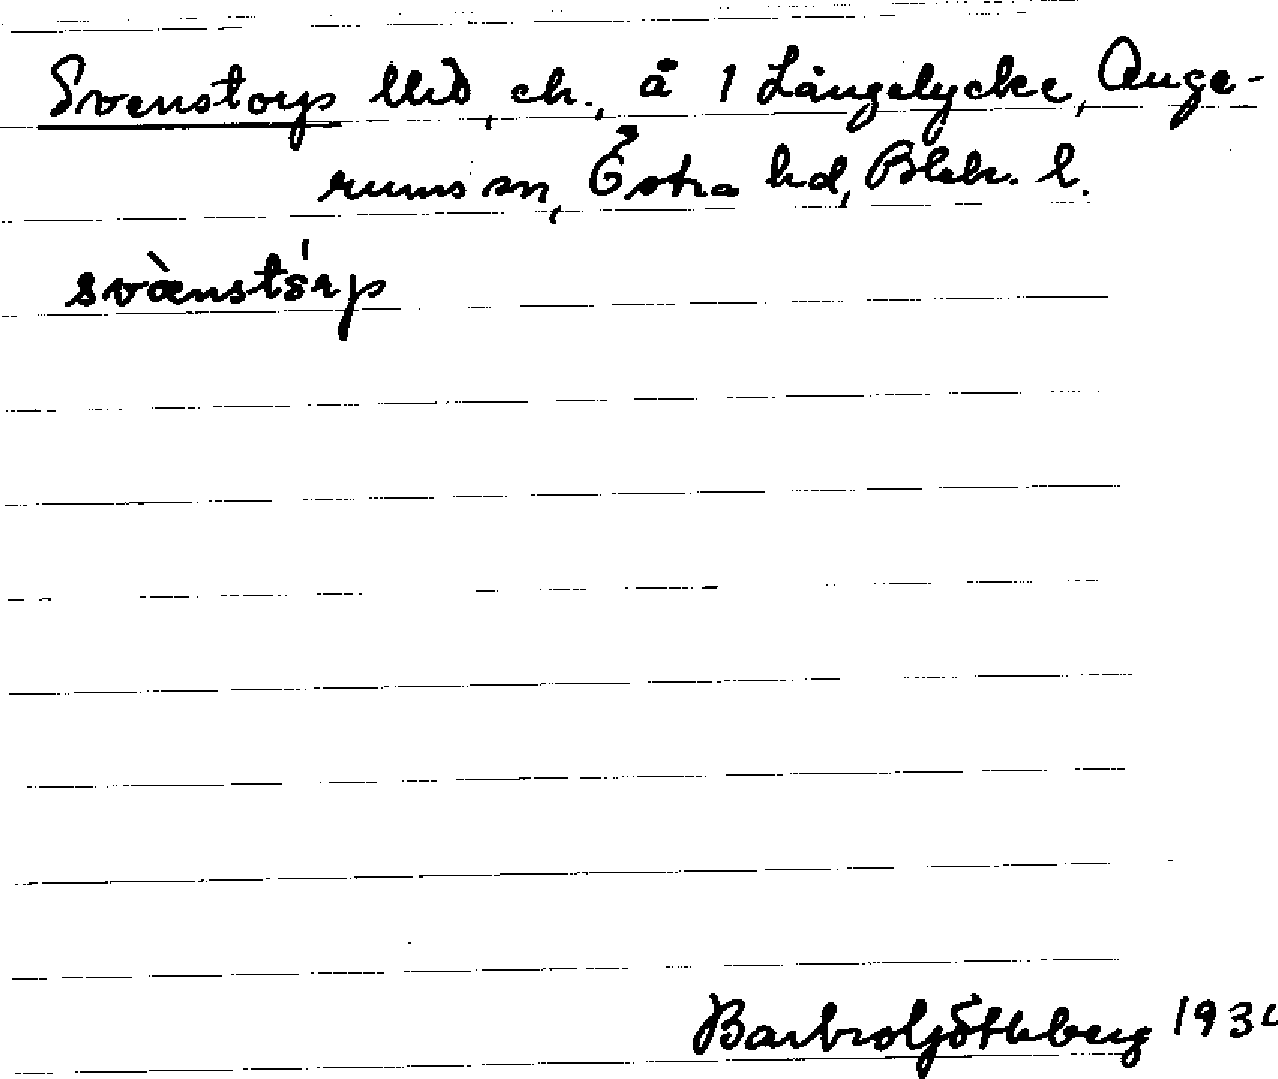 Svenstorp llid, ch., å 1 Långelycke, Auge-
rums sn, Östra hd, Blek. l.
svànstórp
Barbro Götheberg 193